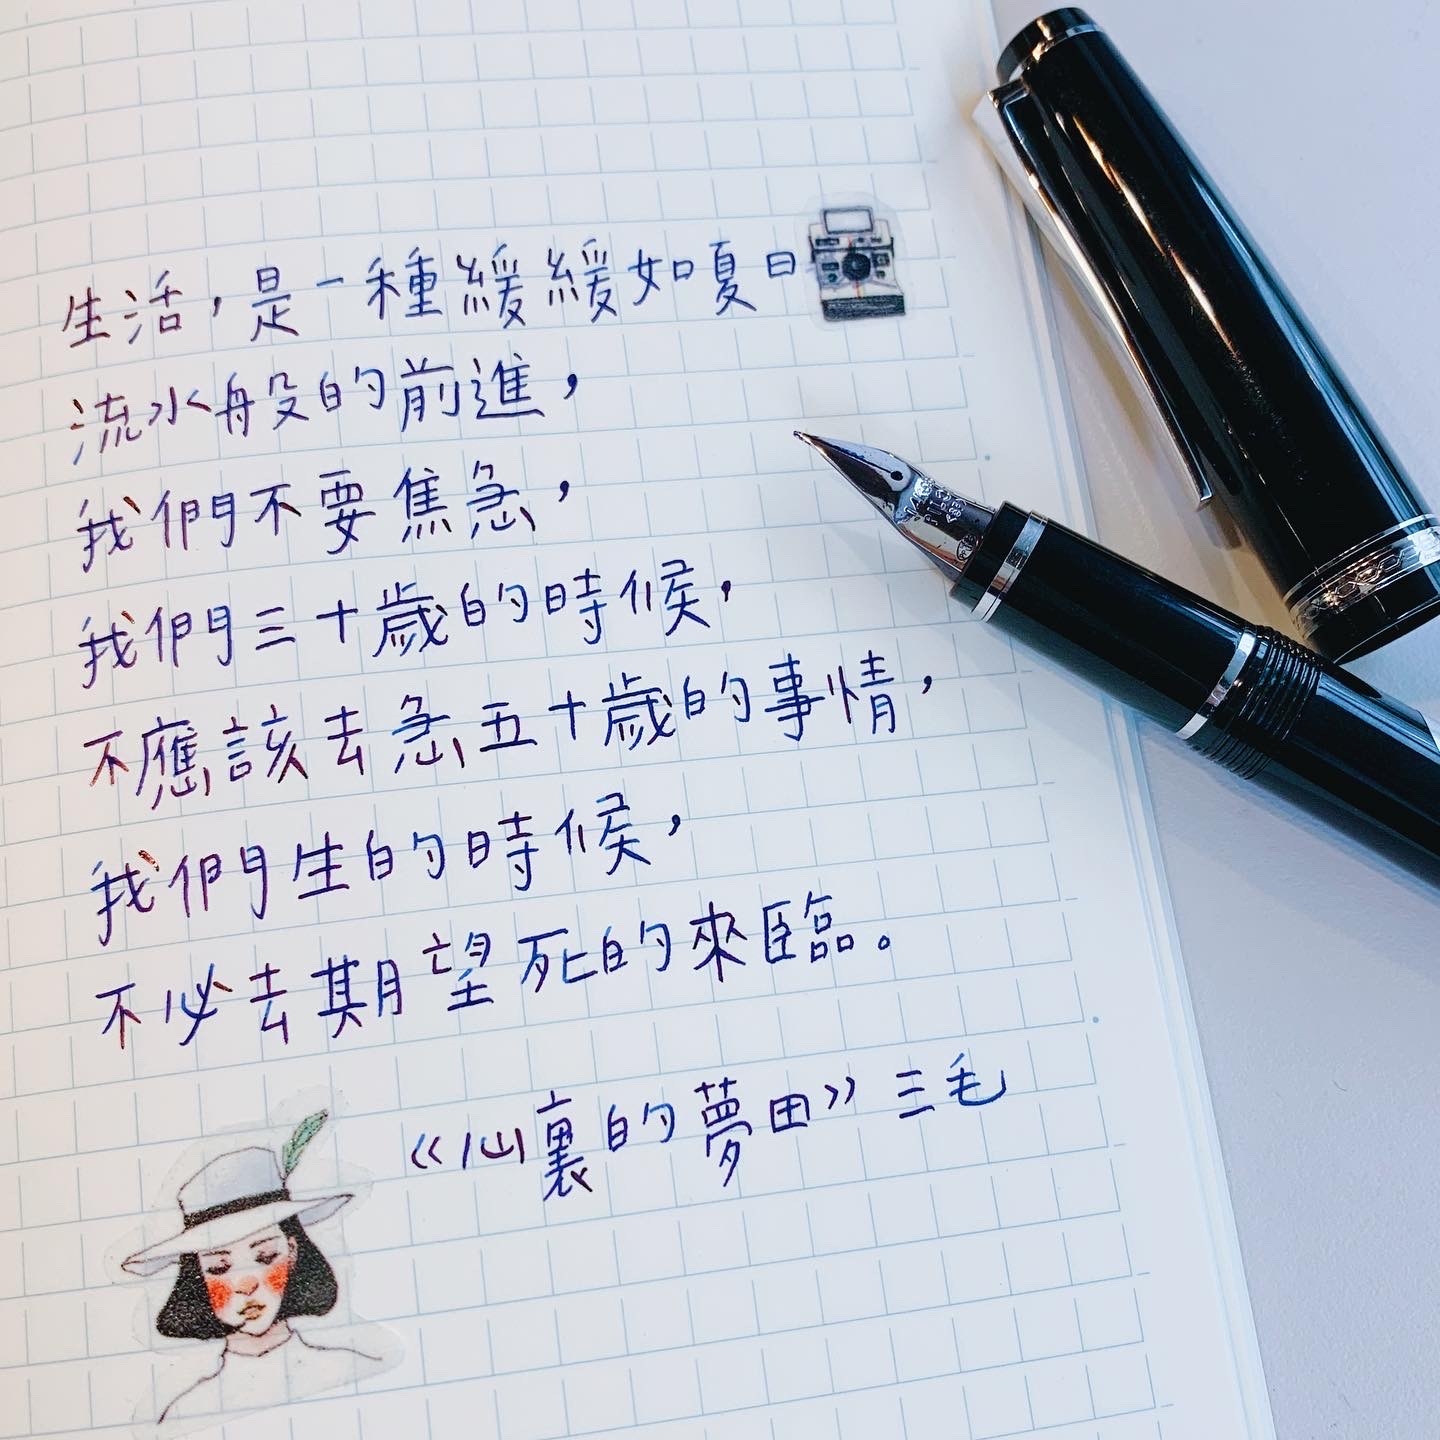 生活，是一種緩緩如夏日
流水般的前進，
我們不要焦急，
我們三十歲的時候，
不應該去急五十歲的事情，
我們生的時候，
不必去期望死的來臨。
《心裏的夢田》三毛